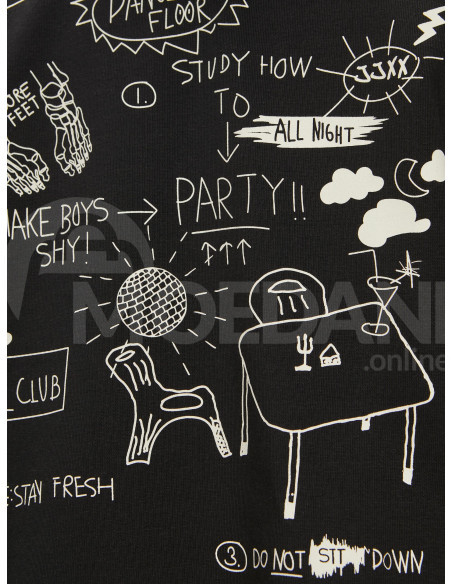 DANCE
FLOOR
STUDY HOW
JJXX
1.
TO
ALL NIGHT
FEET
PARTY!!
MAKE BOYS
SHY!
MOEDANI
.online
CLUB
STAY FRESH
3. DO NOT SIT DOWN